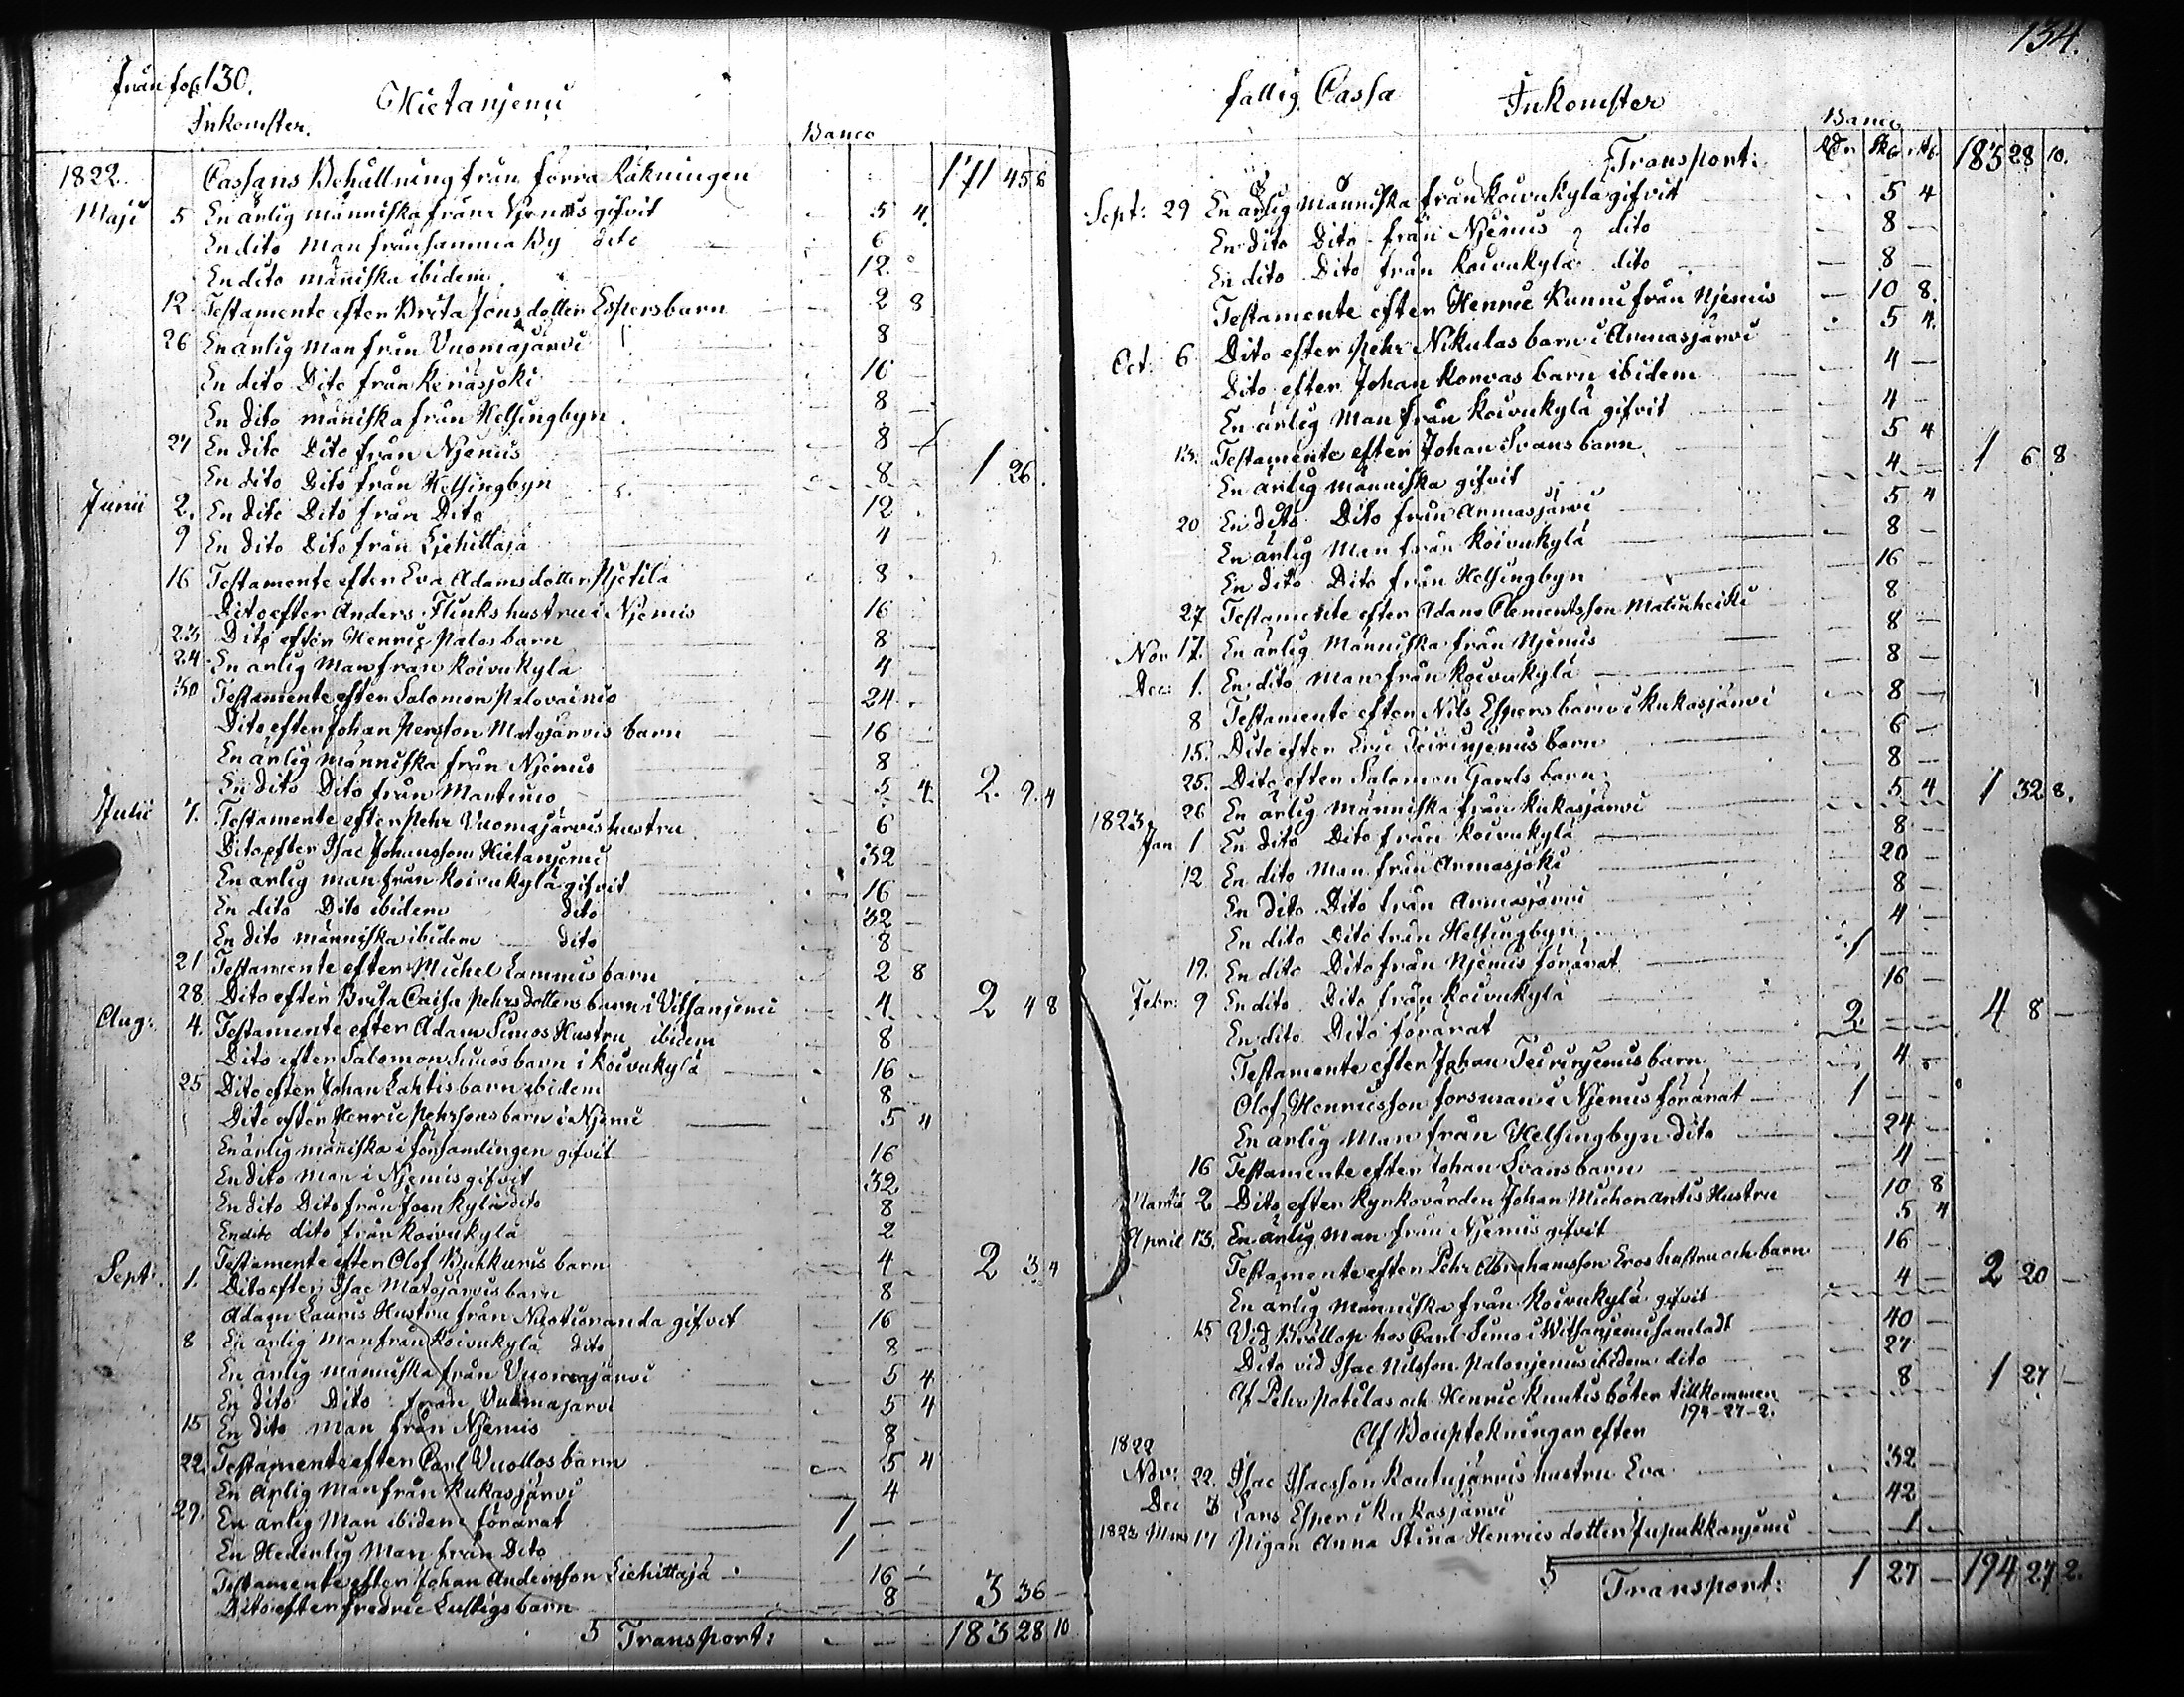 från fol 130.
Hietanjemi
Inkomster.
Banco
1822. Cassans Behållning från förra Räkningen 171 45 6
Maji 5 En ärlig människa från Njemis gifvit 5 4.
En dito Man från samma By dito 6
En dito människa ibidem 12.
12 Testamente efter Brita Jonsdotter Espers barn 2 8
26 En ärlig Man från Vuomajärvi 8
En dito Dito från Keräsjoki 16
En dito människa från Helsingbyn 8
27 En dito Dito från Njemis 8
En dito Dito från Helsingbyn 8 1 26.
Junii 2. En dito Dito från Dito 12
9 En dito Dito från Liehittäjä 4
16 Testamente efter Eva Adamsdotter Pjetilä 8
Dito efter Anders Flinks hustru i Njemis 16
23 Dito efter Henric Palos barn 8
24 En ärlig Man från Koivukylä 4
30 Testamente efter Salomon Palovainio 24
Dito efter Johan Persson Matojärvis barn 16
En ärlig människa från Njemis 8
En dito Dito från Martimo 5 4 2. 9. 4
Julii 7. Testamente efter Pehr Vuomajärvis hustru 6
Dito efter Isac Johansson Hietanjemi 32
En ärlig man från Koivukylä gifvit 16
En dito Dito ibidem dito 32
En dito människa ibidem dito 8
21 Testamente efter Michel Lammis barn 2 8
28 Dito efter Brita Caisa Pehrsdotters barn i Vitsanjemi 4 2 4 8
Aug: 4. Testamente efter Adam Simos Hustru ibidem 8
Dito efter Salomon Simos barn i Koivukylä 16
25 Dito efter Johan Lahtis barn ibidem 8
Dito efter Henric Pehrssons barn i Njemi 5 4
En ärlig människa i församlingen gifvit 16
En dito Man i Njemis gifvit 32
En dito Dito från kylä dito 8
En dito dito från Koivukylä 2
Testamente efter Olof Buhkuris barn 4 2 3 4
Sept: 1. Dito efter Isac Matojärvis barn 8
Adam Lauris Hustru från gifvit 16
8 En ärlig Man från Koivukylä dito 8
En ärlig människa från Vuomajärvi 5 4
En dito Dito från Vuomajärvi 5 4
15 En dito Man från Njemis 8
22. Testamente efter Carl Vuollos barn 5 4
En ärlig Man från Kukasjärvi 4
29. En ärlig Man ibidem förärat 1
En Hederlig Man från Dito 1
Testamente efter Johan Andersson Liehittäjä 16
Dito efter Fredric Lustigs barn 8 3 36
5 Transport: 183 28 10
134.
fattig Cassa Inkomster
Banco
Rdr Sk rst
Transport: 183 28 10.
Sept: 29 En ärlig människa från Koivukylä gifvit 5 4
En dito Dito från Njemis dito 8
En dito Dito från Koivukylä dito 8
Testamente efter Henric Kunni från Njemis 10 8.
Oct: 6 Dito efter Pehr Nikulas barn i Armasjärvi 5 4.
Dito efter Johan Korvas barn ibidem 4
En ärlig Man från Koivukylä gifvit 4
13. Testamente efter Johan Svans barn 5 4
En ärlig människa gifvit 4 1 6 8
20 En dito Dito från Armasjärvi 5 4
En ärlig Man från Koivukylä 8
En dito Dito från Helsingbyn 16
27 Testamente efter Adam Clementsson Matinheikki 8
Nov 17. En ärlig Människa från Njemis 8
Dec: 1. En dito Man från Koivukylä 8
8 Testamente efter Nils Espers barn i Kukasjärvi 8
15. Dito efter Eric Teirinjemis barn 6
25. Dito efter Salomon Gards barn 8
26 En ärlig människa från Kukasjärvi 5 4 1 32 8.
1823.
Jan 1 En dito Dito från Koivukylä 8
12 En dito Man från Armasjoki 20
En dito Dito från Armasjärvi 8
En dito Dito från Helsingbyn 4
19. En dito Dito från Njemis förärat 1
Febr: 9 En dito Dito från Koivukylä 16
En dito Dito förärat 2 4 8
Testamente efter Johan Teirinjemis barn 4
Olof Henricsson Forsman i Njemis förärat 1
En ärlig Man från Helsingbyn dito 24
16 Testamente efter Johan Svans barn 4
Martii 2 Dito efter Kyrkovärden Johan Hustru 10 8
April 13. En ärlig Man från Njemis gifvit 5 4
Testamente efter Pehr Abrahamsson Eros hustru och barn 16
En ärlig Människa från Koivukylä gifvit 4 2 20
15 Vid Bröllop hos Carl Simo i Witsanjemi samladt 40
Dito vid Isac Nilsson Palonjemis ibidem dito 27
Af Pehr Potilas och Henric Knutis böter tillkommen 8 1 27
194-27-2.
Af Bouptekningar efter
1822
Nov: 22. Isac Isacsson Koutujärvis hustru Eva 32
Dec 3 Lars Esper i Kukasjärvi 42
1823 Mars 17 Pigan Anna Stina Henricsdotter Jupukkanjemi 1
5 Transport: 1 27 194 27 2.